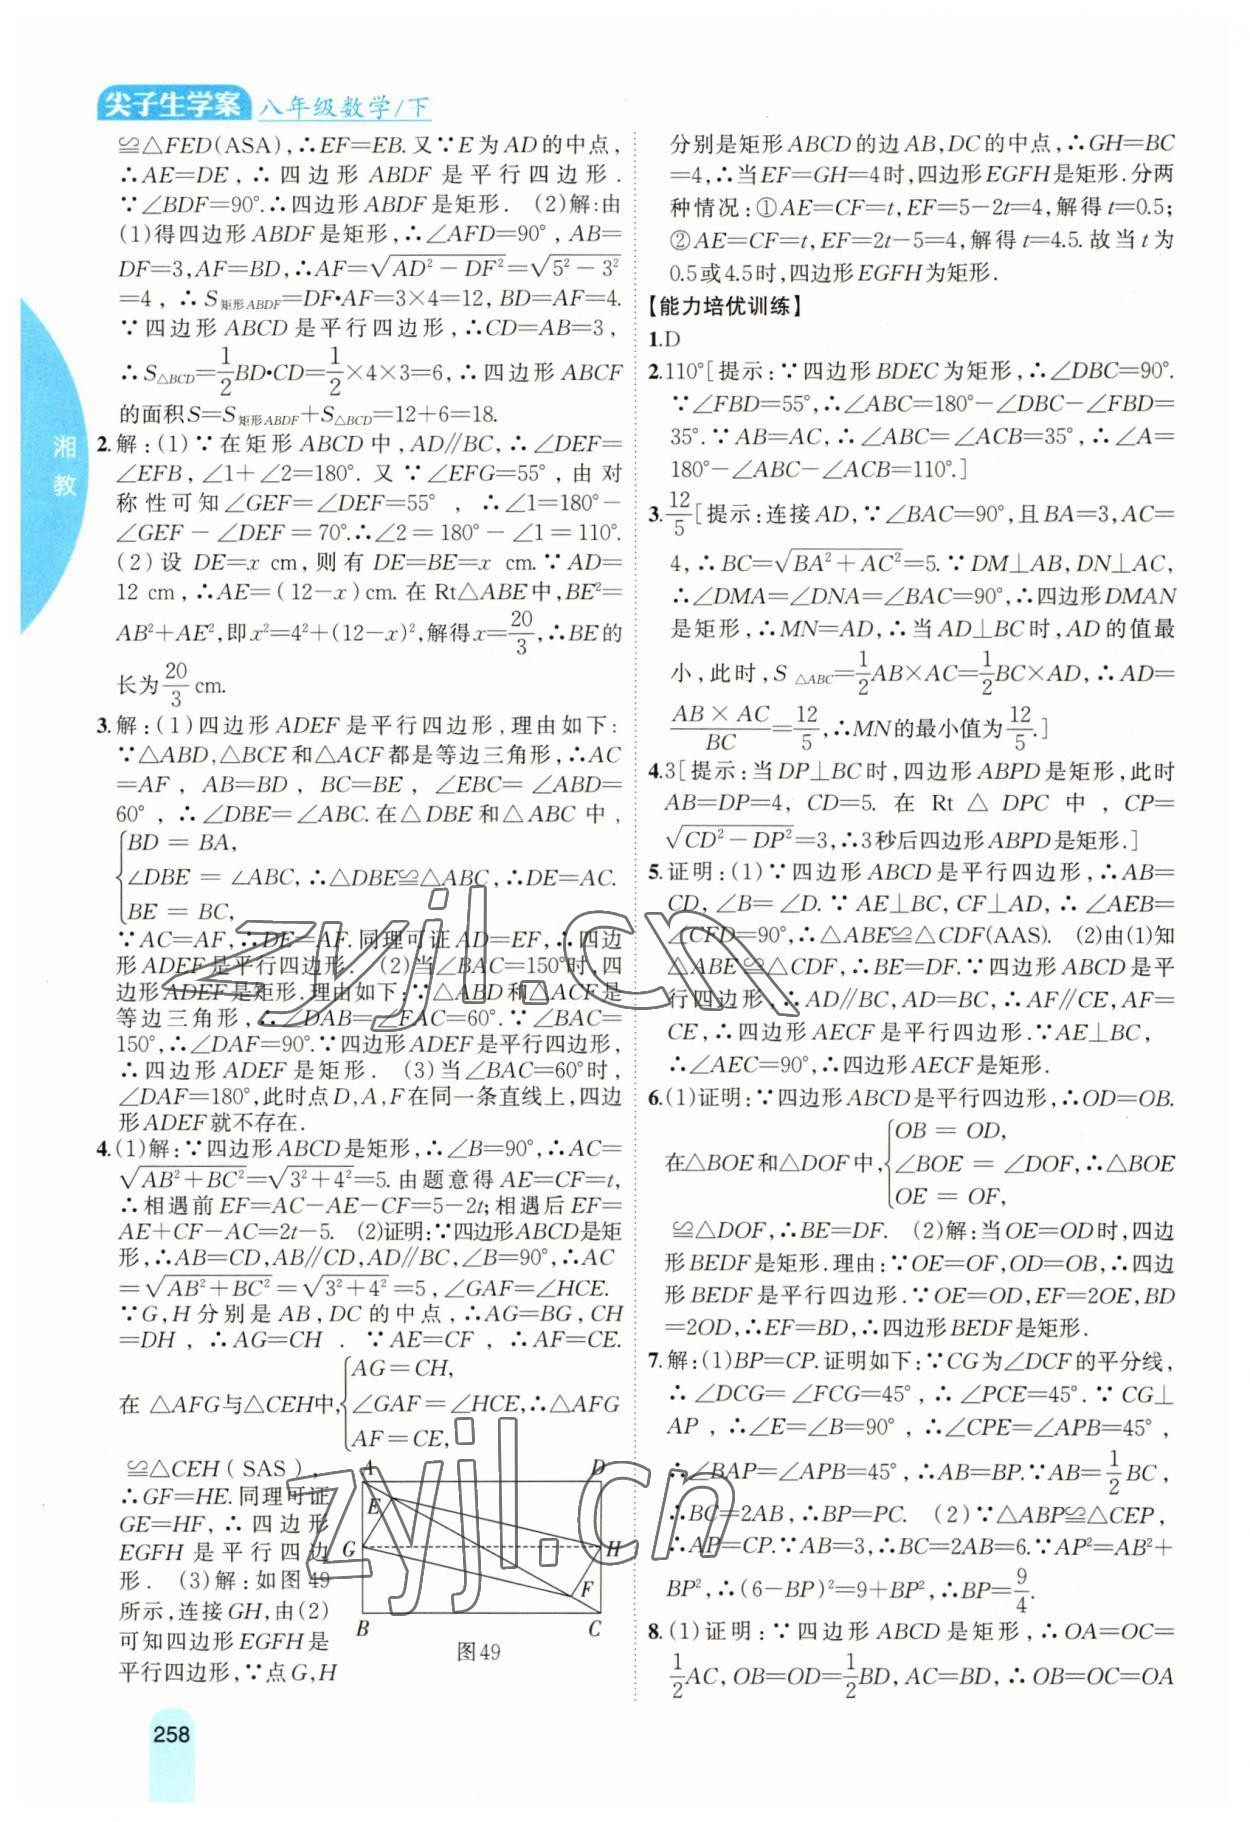 尖子生学案 八年级数学/下
湘教
≌△FED(ASA),∴EF=EB.又∵E为AD的中点,
∴AE=DE,∴四边形ABDF是平行四边形.
∵∠BDF=90°.∴四边形ABDF是矩形. (2)解:由
(1)得四边形ABDF是矩形,∴∠AFD=90°,AB=
DF=3,AF=BD,∴AF=√(AD²-DF²)=√(5²-3²)
=4,∴S矩形ABDF=DF•AF=3×4=12,BD=AF=4.
∵四边形ABCD是平行四边形,∴CD=AB=3,
∴S△BCD=1/2BD•CD=1/2×4×3=6,∴四边形ABCF
的面积S=S矩形ABDF+S△BCD=12+6=18.
2.解:(1)∵在矩形ABCD中,AD//BC,∴∠DEF=
∠EFB,∠1+∠2=180°.又∵∠EFG=55°,由对
称性可知∠GEF=∠DEF=55°,∴∠1=180°-
∠GEF-∠DEF=70°.∴∠2=180°-∠1=110°.
(2)设DE=x cm,则有DE=BE=x cm.∵AD=
12 cm,∴AE=(12-x)cm.在Rt△ABE中,BE²=
AB²+AE²,即x²=4²+(12-x)²,解得x=20/3,∴BE的
长为20/3 cm.
3.解:(1)四边形ADEF是平行四边形,理由如下:
∵△ABD,△BCE和△ACF都是等边三角形,∴AC
=AF,AB=BD,BC=BE,∠EBC=∠ABD=
60°,∴∠DBE=∠ABC.在△DBE和△ABC中,
{BD=BA,
∠DBE=∠ABC,∴△DBE≌△ABC,∴DE=AC.
BE=BC,
∵AC=AF,∴DE=AF.同理可证AD=EF,∴四边
形ADEF是平行四边形. (2)当∠BAC=150°时,四
边形ADEF是矩形.理由如下:∵△ABD和△ACF是
等边三角形,∴∠DAB=∠FAC=60°.∵∠BAC=
150°,∴∠DAF=90°.∵四边形ADEF是平行四边形,
∴四边形ADEF是矩形. (3)当∠BAC=60°时,
∠DAF=180°,此时点D,A,F在同一条直线上,四边
形ADEF就不存在.
4.(1)解:∵四边形ABCD是矩形,∴∠B=90°,∴AC=
√(AB²+BC²)=√(3²+4²)=5.由题意得AE=CF=t,
∴相遇前EF=AC-AE-CF=5-2t;相遇后EF=
AE+CF-AC=2t-5. (2)证明:∵四边形ABCD是矩
形,∴AB=CD,AB//CD,AD//BC,∠B=90°,∴AC
=√(AB²+BC²)=√(3²+4²)=5,∠GAF=∠HCE.
∵G,H分别是AB,DC的中点,∴AG=BG,CH
=DH,∴AG=CH.∵AE=CF,∴AF=CE.
{AG=CH,
在△AFG与△CEH中,∠GAF=∠HCE,∴△AFG
AF=CE,
≌△CEH(SAS),
∴GF=HE.同理可证
GE=HF,∴四边形
EGFH是平行四边
形. (3)解:如图49
所示,连接GH,由(2)
可知四边形EGFH是
平行四边形,∵点G,H
A D
E
G H
F
B C
图49
分别是矩形ABCD的边AB,DC的中点,∴GH=BC
=4,∴当EF=GH=4时,四边形EGFH是矩形.分两
种情况:①AE=CF=t,EF=5-2t=4,解得t=0.5;
②AE=CF=t,EF=2t-5=4,解得t=4.5.故当t为
0.5或4.5时,四边形EGFH为矩形.
【能力培优训练】
1.D
2.110°[提示:∵四边形BDEC为矩形,∴∠DBC=90°.
∵∠FBD=55°,∴∠ABC=180°-∠DBC-∠FBD=
35°.∵AB=AC,∴∠ABC=∠ACB=35°,∴∠A=
180°-∠ABC-∠ACB=110°.]
3.12/5[提示:连接AD,∵∠BAC=90°,且BA=3,AC=
4,∴BC=√(BA²+AC²)=5.∵DM⊥AB,DN⊥AC,
∴∠DMA=∠DNA=∠BAC=90°,∴四边形DMAN
是矩形,∴MN=AD,∴当AD⊥BC时,AD的值最
小,此时,S△ABC=1/2AB×AC=1/2BC×AD,∴AD=
AB×AC/BC=12/5,∴MN的最小值为12/5.]
4.3[提示:当DP⊥BC时,四边形ABPD是矩形,此时
AB=DP=4,CD=5.在Rt△DPC中,CP=
√(CD²-DP²)=3,∴3秒后四边形ABPD是矩形.]
5.证明:(1)∵四边形ABCD是平行四边形,∴AB=
CD,∠B=∠D.∵AE⊥BC,CF⊥AD,∴∠AEB=
∠CFD=90°,∴△ABE≌△CDF(AAS). (2)由(1)知
△ABE≌△CDF,∴BE=DF.∵四边形ABCD是平
行四边形,∴AD//BC,AD=BC,∴AF//CE,AF=
CE,∴四边形AECF是平行四边形.∵AE⊥BC,
∴∠AEC=90°,∴四边形AECF是矩形.
6.(1)证明:∵四边形ABCD是平行四边形,∴OD=OB.
{OB=OD,
在△BOE和△DOF中,∠BOE=∠DOF,∴△BOE
OE=OF,
≌△DOF,∴BE=DF. (2)解:当OE=OD时,四边
形BEDF是矩形.理由:∵OE=OF,OD=OB,∴四边
形BEDF是平行四边形.∵OE=OD,EF=2OE,BD
=2OD,∴EF=BD,∴四边形BEDF是矩形.
7.解:(1)BP=CP.证明如下:∵CG为∠DCF的平分线,
∴∠DCG=∠FCG=45°,∴∠PCE=45°.∵CG⊥
AP,∴∠E=∠B=90°,∴∠CPE=∠APB=45°,
∴∠BAP=∠APB=45°,∴AB=BP.∵AB=1/2BC,
∴BC=2AB,∴BP=PC. (2)∵△ABP≌△CEP,
∴AP=CP.∵AB=3,∴BC=2AB=6.∵AP²=AB²+
BP²,∴(6-BP)²=9+BP²,∴BP=9/4.
8.(1)证明:∵四边形ABCD是矩形,∴OA=OC=
1/2AC,OB=OD=1/2BD,AC=BD,∴OB=OC=OA
258
zyjl.cn
zyjl.cn